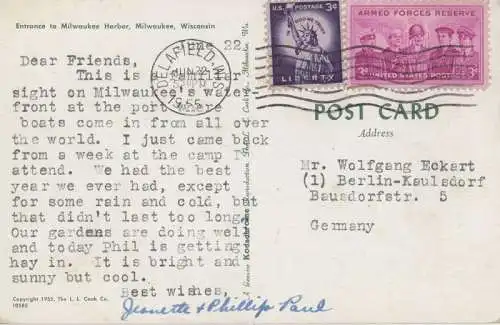 Entrance to Milwaukee Harbor, Milwaukee, Wisconsin
June 22.
Dear Friends,
This is a familiar
sight on Milwaukee's water-
front at the port where
boats come in from all over
the world. I just came back
from a week at the camp I
attend. We had the best
year we ever had, except
for some rain and cold, but
that didn't last too long.
Our gardens are doing well
and today Phil is getting
hay in. It is bright and
sunny but cool.
Best wishes,
Jeanette & Phillip Paul
Copyright 1955, The L. L. Cook Co.
A Genuine Kodachrome Reproduction
L. L. Cook Co., Milwaukee, Wis.
DELAFIELD, WIS.
JUN 22
1955
U.S. POSTAGE 3¢
LIBERTY
ARMED FORCES RESERVE
3¢ UNITED STATES POSTAGE
POST CARD
Address
Mr. Wolfgang Eckart
(1) Berlin-Kaulsdorf
Bausdorfstr. 5
Germany